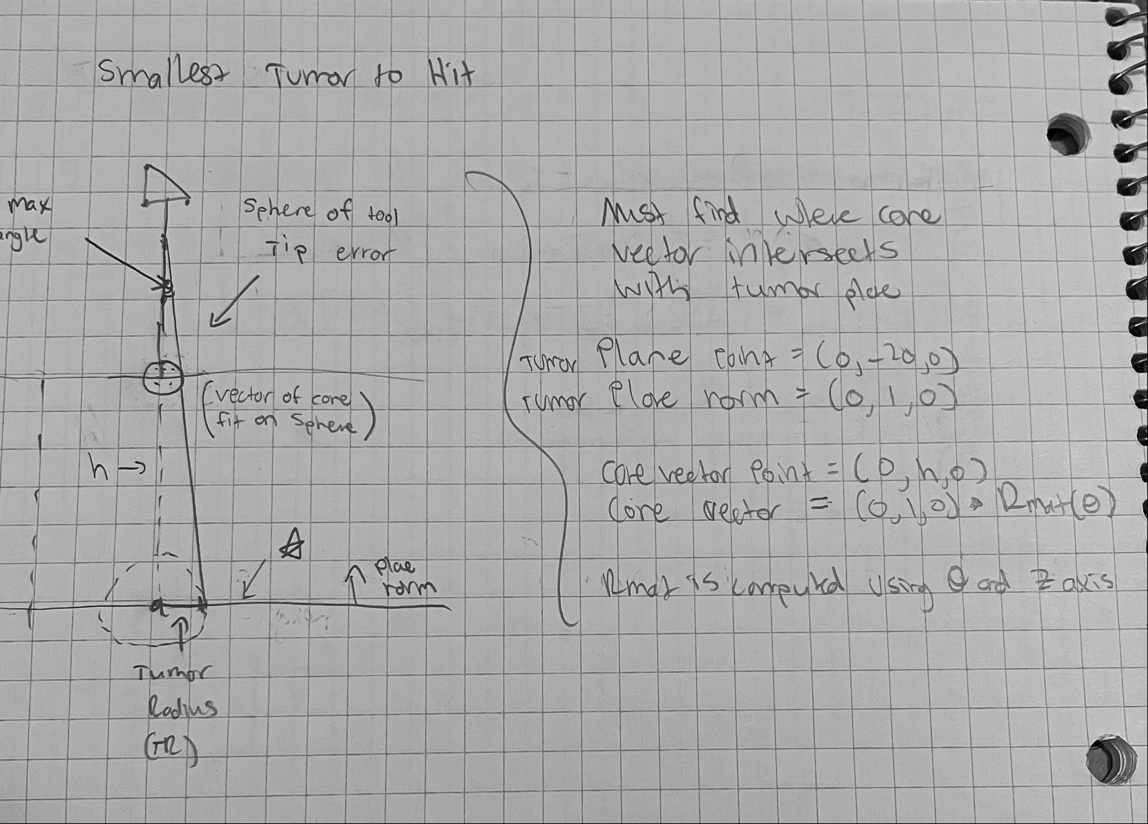 Smallest Tumor to Hit
max
angle
Sphere of tool
Tip error
(vector of core
fit on sphere)
h →
plae
norm
Tumor
Radius
(TR)
Must find where cone
vector intersects
with tumor plae
Tumor Plane Point = (0,-20,0)
Tumor Plane norm = (0,1,0)
Core vector Point = (0,h,0)
Core vector = (0,1,0) * Rmat(θ)
Rmat is computed using θ and z axis